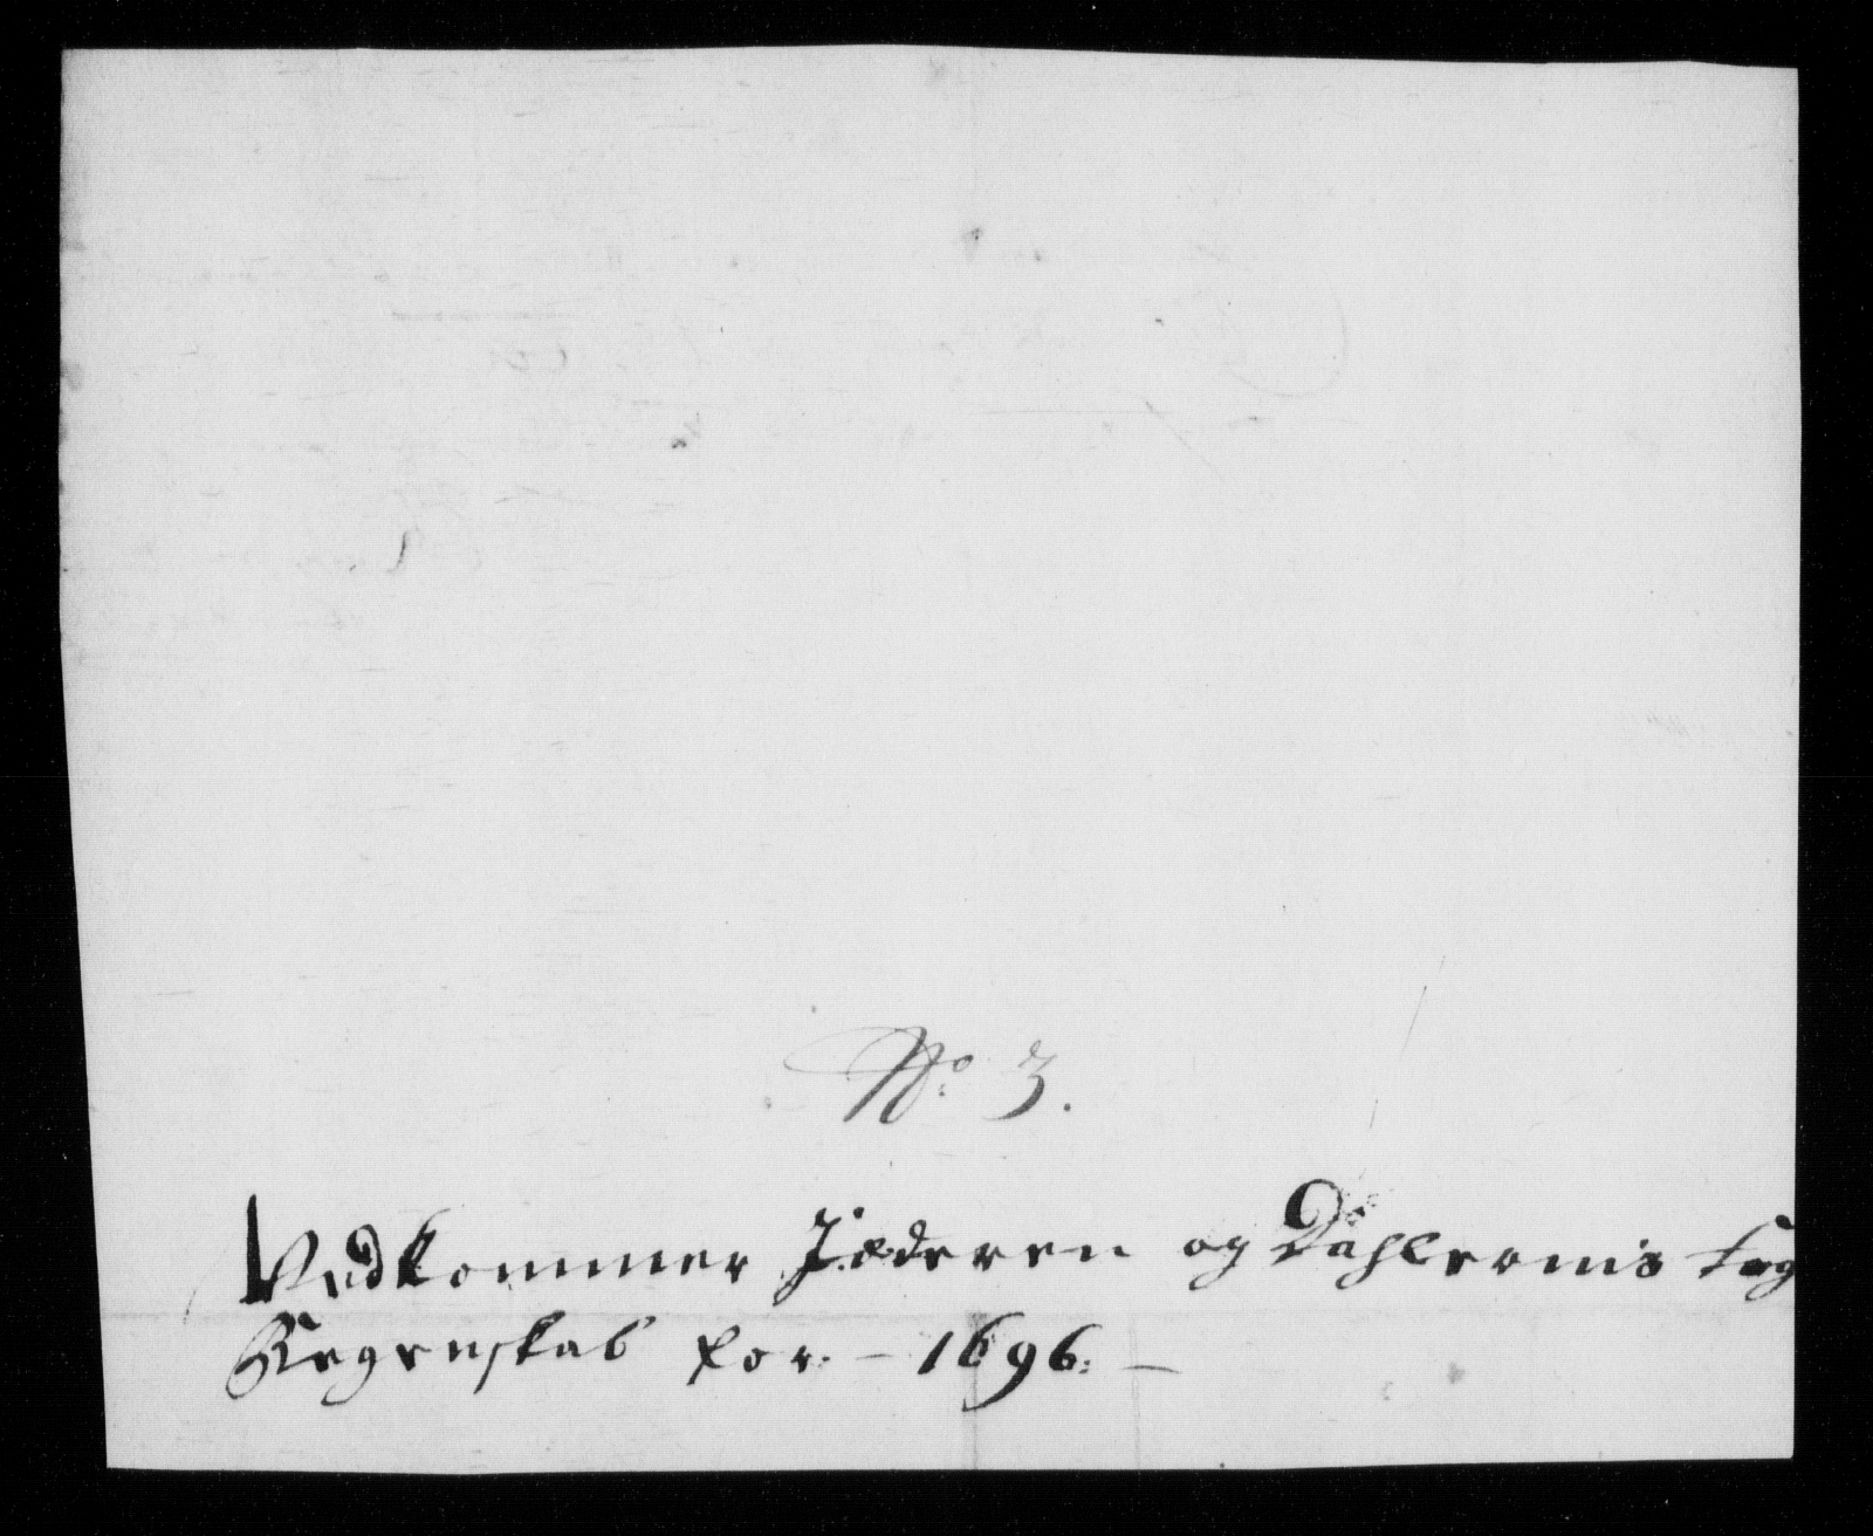 No 3.
Vedkommer Jæderen og Dahlernis fog
Regenskab for. – 1696. –